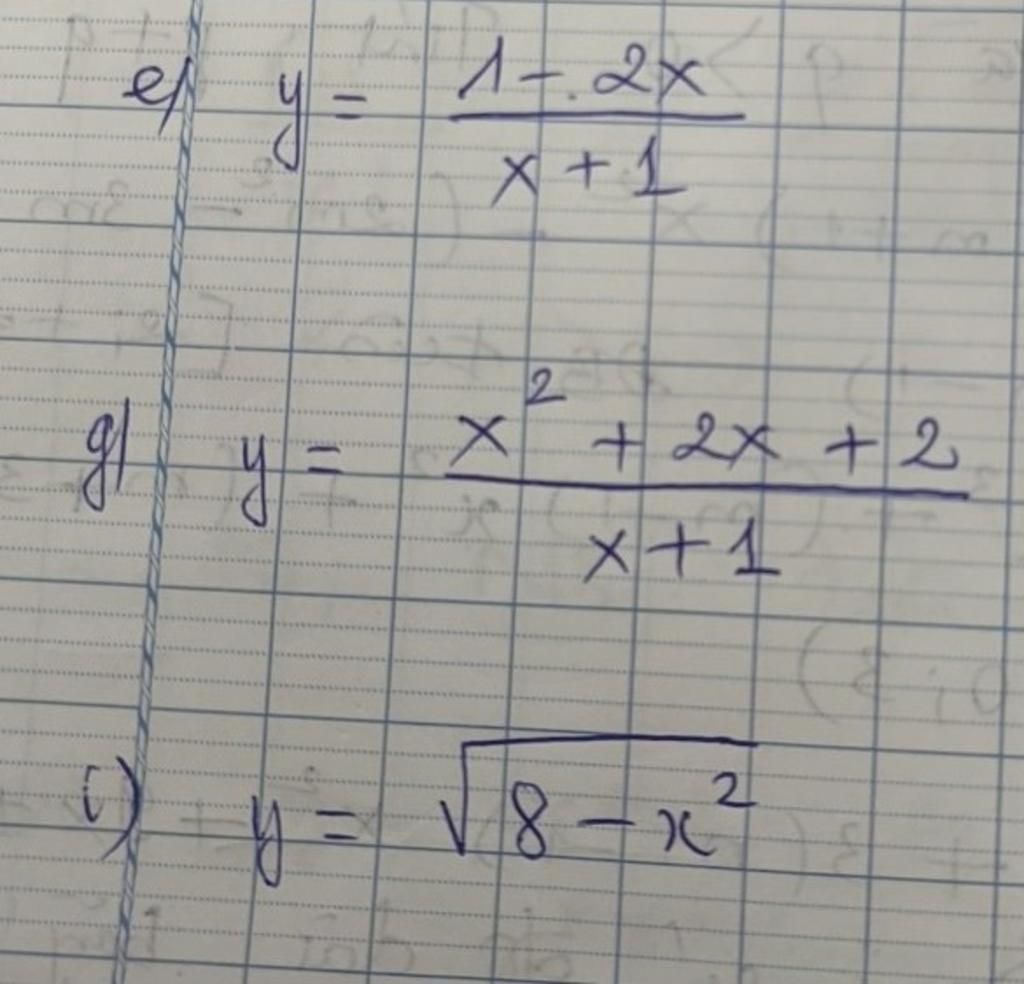 e) y = \frac{1 - 2x}{x + 1}
g) y = \frac{x^2 + 2x + 2}{x + 1}
i) y = \sqrt{8 - x^2}